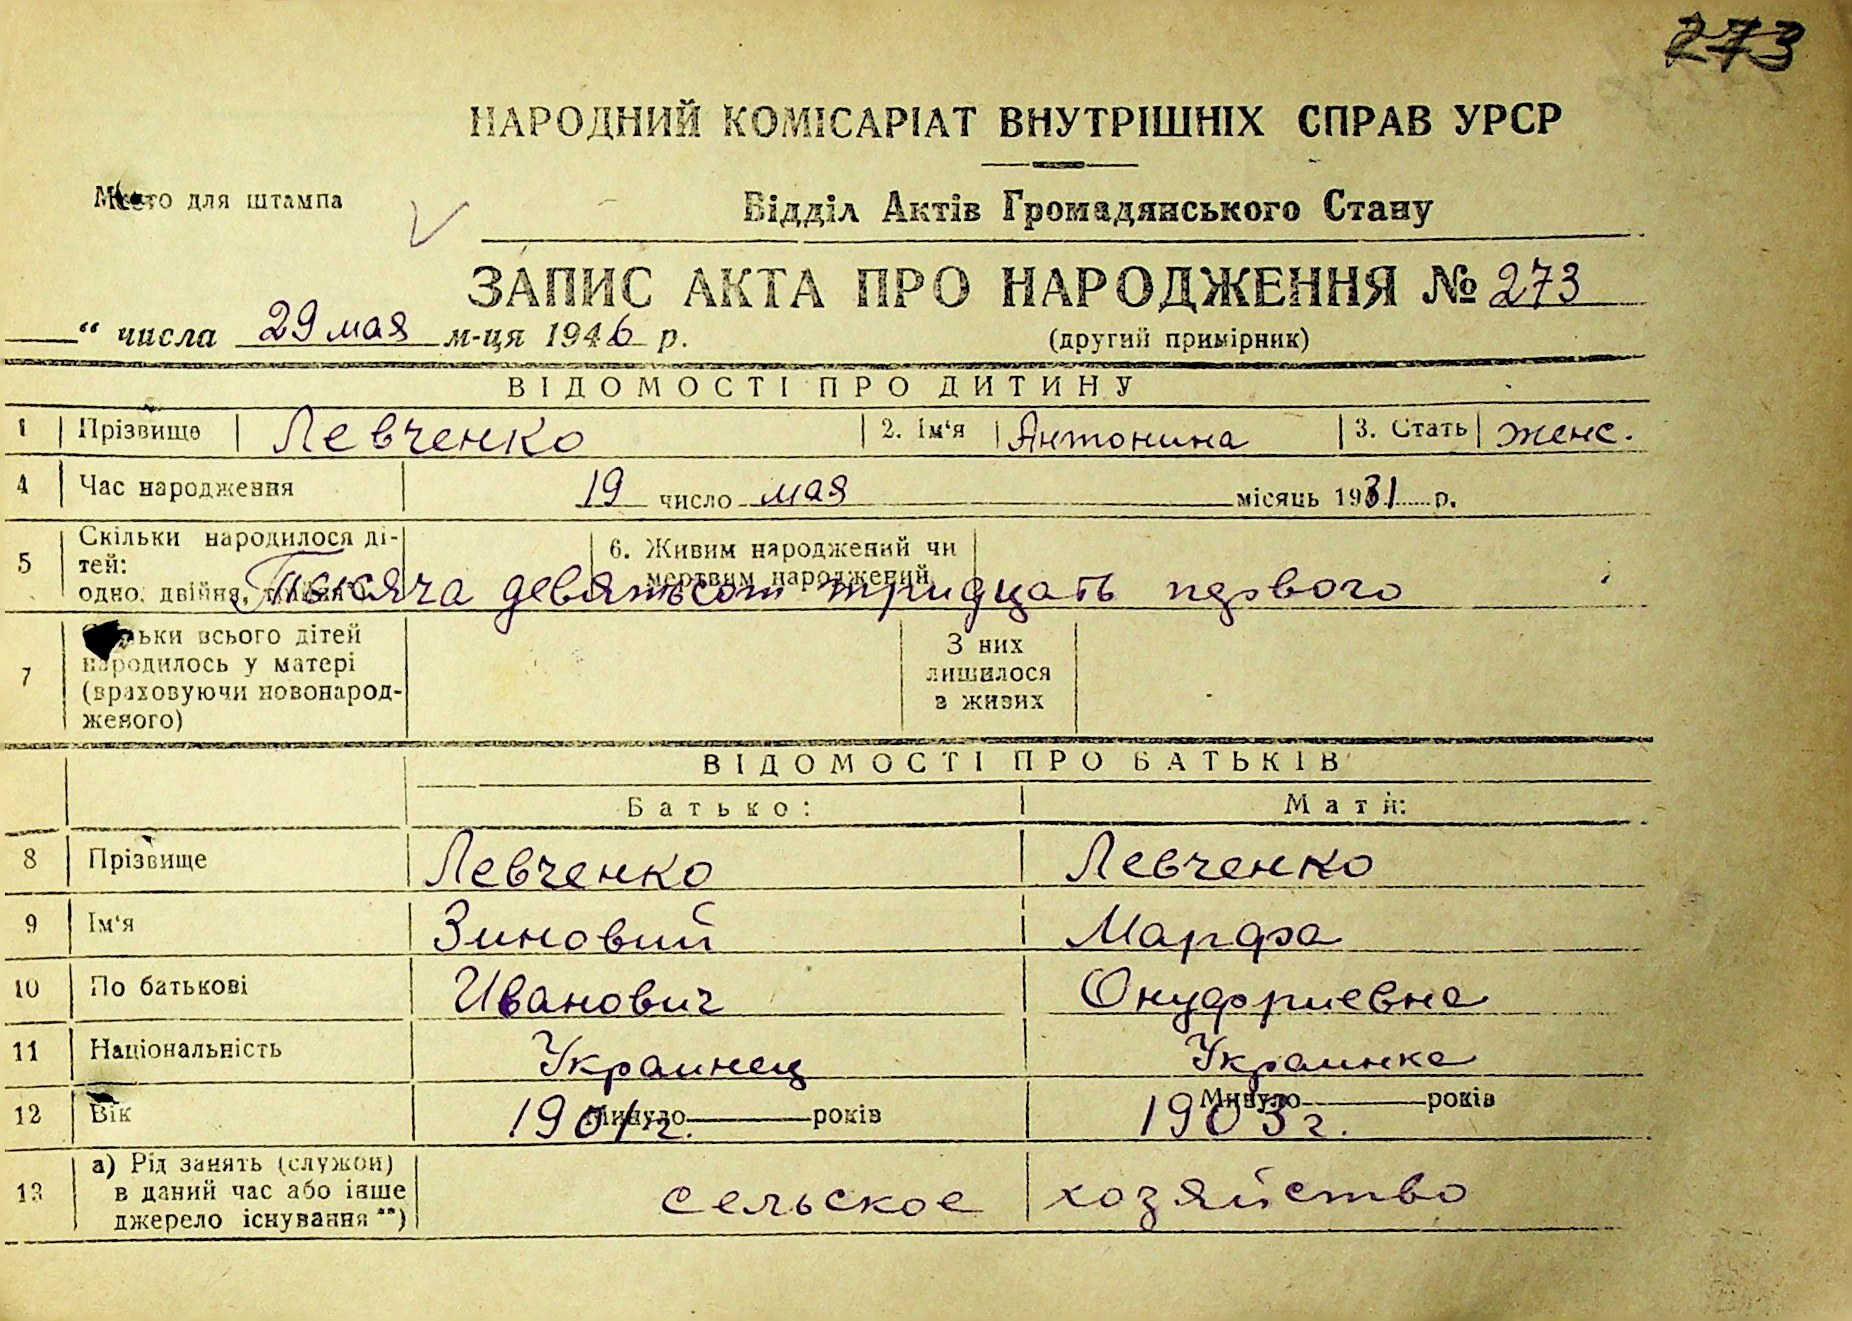 273
НАРОДНИЙ КОМІСАРІАТ ВНУТРІШНІХ СПРАВ УРСР
Место для штампа
Відділ Актів Громадянського Стану
ЗАПИС АКТА ПРО НАРОДЖЕННЯ № 273
“ числа 29 мая м-ця 1946 р. (другий примірник)
ВІДОМОСТІ ПРО ДИТИНУ
1 Прізвище Левченко 2. Ім‘я Антонина 3. Стать женс.
4 Час народження 19 число мая місяць 1931 р.
5 Скільки народилося ді-
тей:
одно, двійня,
6. Живим народжений чи
мертвим народжений
Тысяча девятьсот тридцать первого
7 Скільки всього дітей
народилось у матері
(враховуючи новонарод-
женого)
З них
лишилося
в живих
ВІДОМОСТІ ПРО БАТЬКІВ
Батько: Мати:
8 Прізвище Левченко Левченко
9 Ім‘я Зиновий Марфа
10 По батькові Иванович Онуфриевна
11 Національність Украинец Украинка
12 Вік Минуло років 1901 г. Минуло років 1903 г.
13 а) Рід занять (служби)
в даний час або інше
джерело існування **)
сельское хозяйство